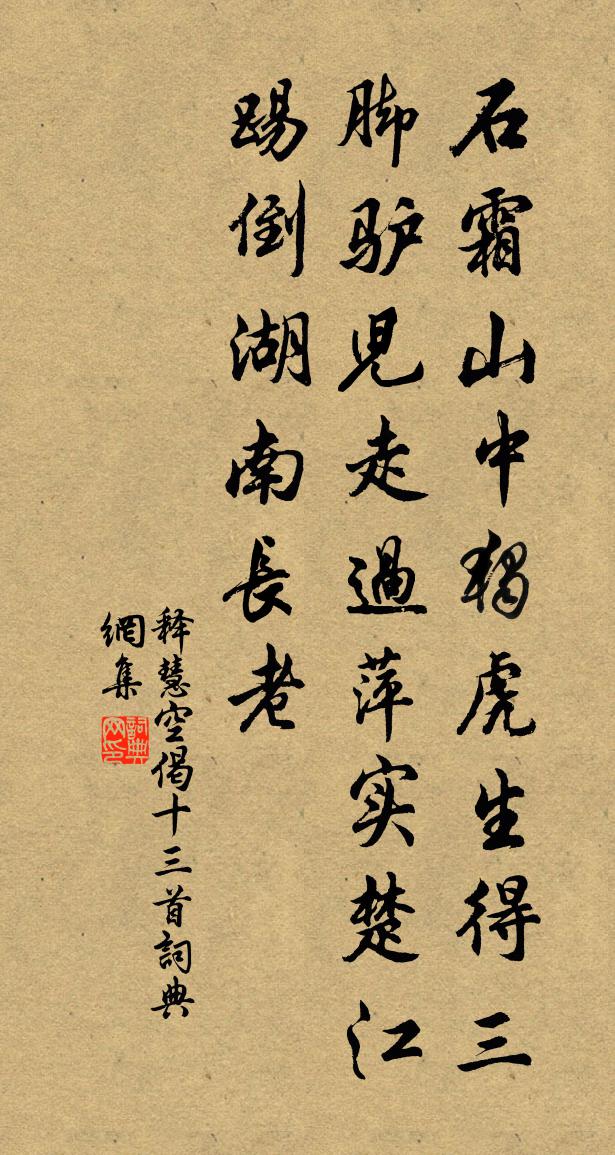 石霜山中独虎生得三
脚驴児走過萍实楚江
踢倒湖南長老
释慧空偈十三首詞典
網集
詞典网印